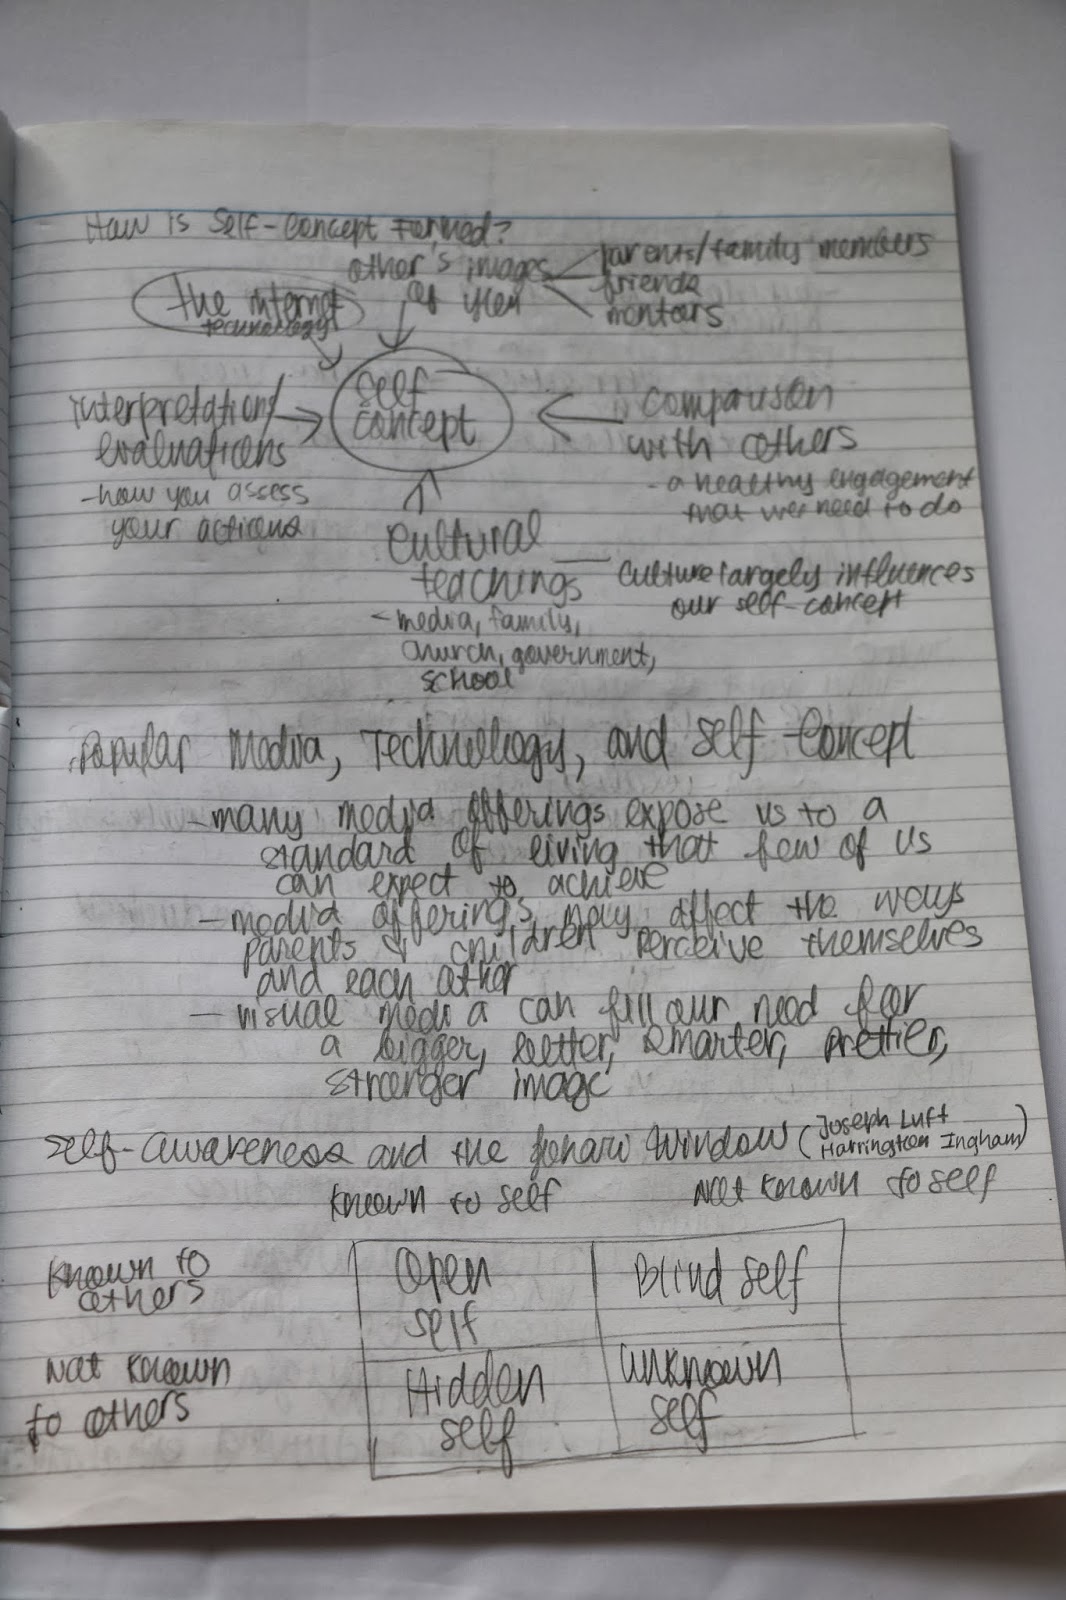 How is Self-Concept Formed?
other's images of you
parents/family members
friends
mentors
the internet
technology
self
concept
interpretation/
evaluations
-how you assess
your actions
comparison
with others
- a healthy engagement
that we need to do
cultural
teachings
- media, family,
church, government,
school
culture largely influences
our self-concept
Popular Media, Technology, and Self Concept
- many media offerings expose us to a
standard of living that few of us
can expect to achieve
- media offerings may affect the ways
parents & children perceive themselves
and each other
- visual media can fill our need for
a bigger, better, smarter, prettier,
stronger image
Self-awareness and the Johari Window (Joseph Luft
Harrington Ingham)
Known to self
Not known to self
Known to
others
Open
self
Blind self
Not known
to others
Hidden
self
unknown
self